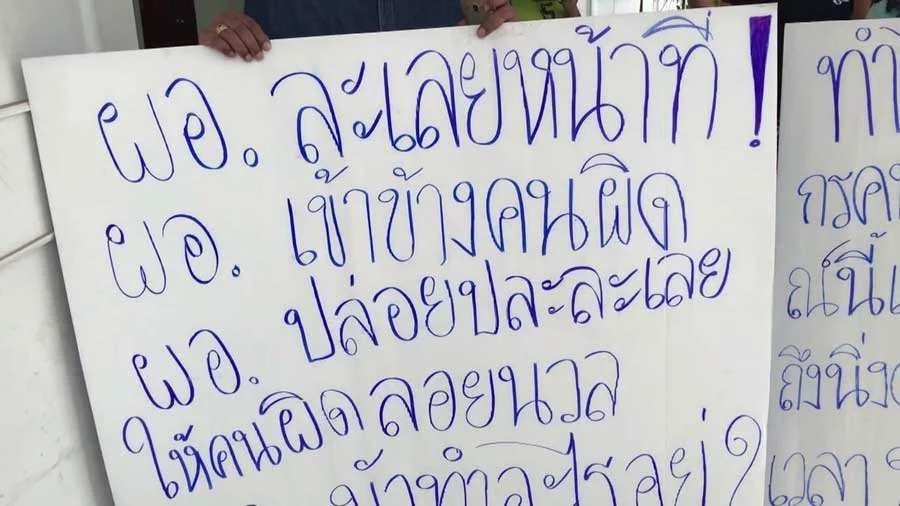 ผอ. ละเลยหน้าที่!
ผอ. เข้าข้างคนผิด
ผอ. ปล่อยปละละเลย
ให้คนผิดลอยนวล
ทำอะไรอยู่?
ทำ
กรค
ณ์นี้
ถึงนิ่ง
เวลา